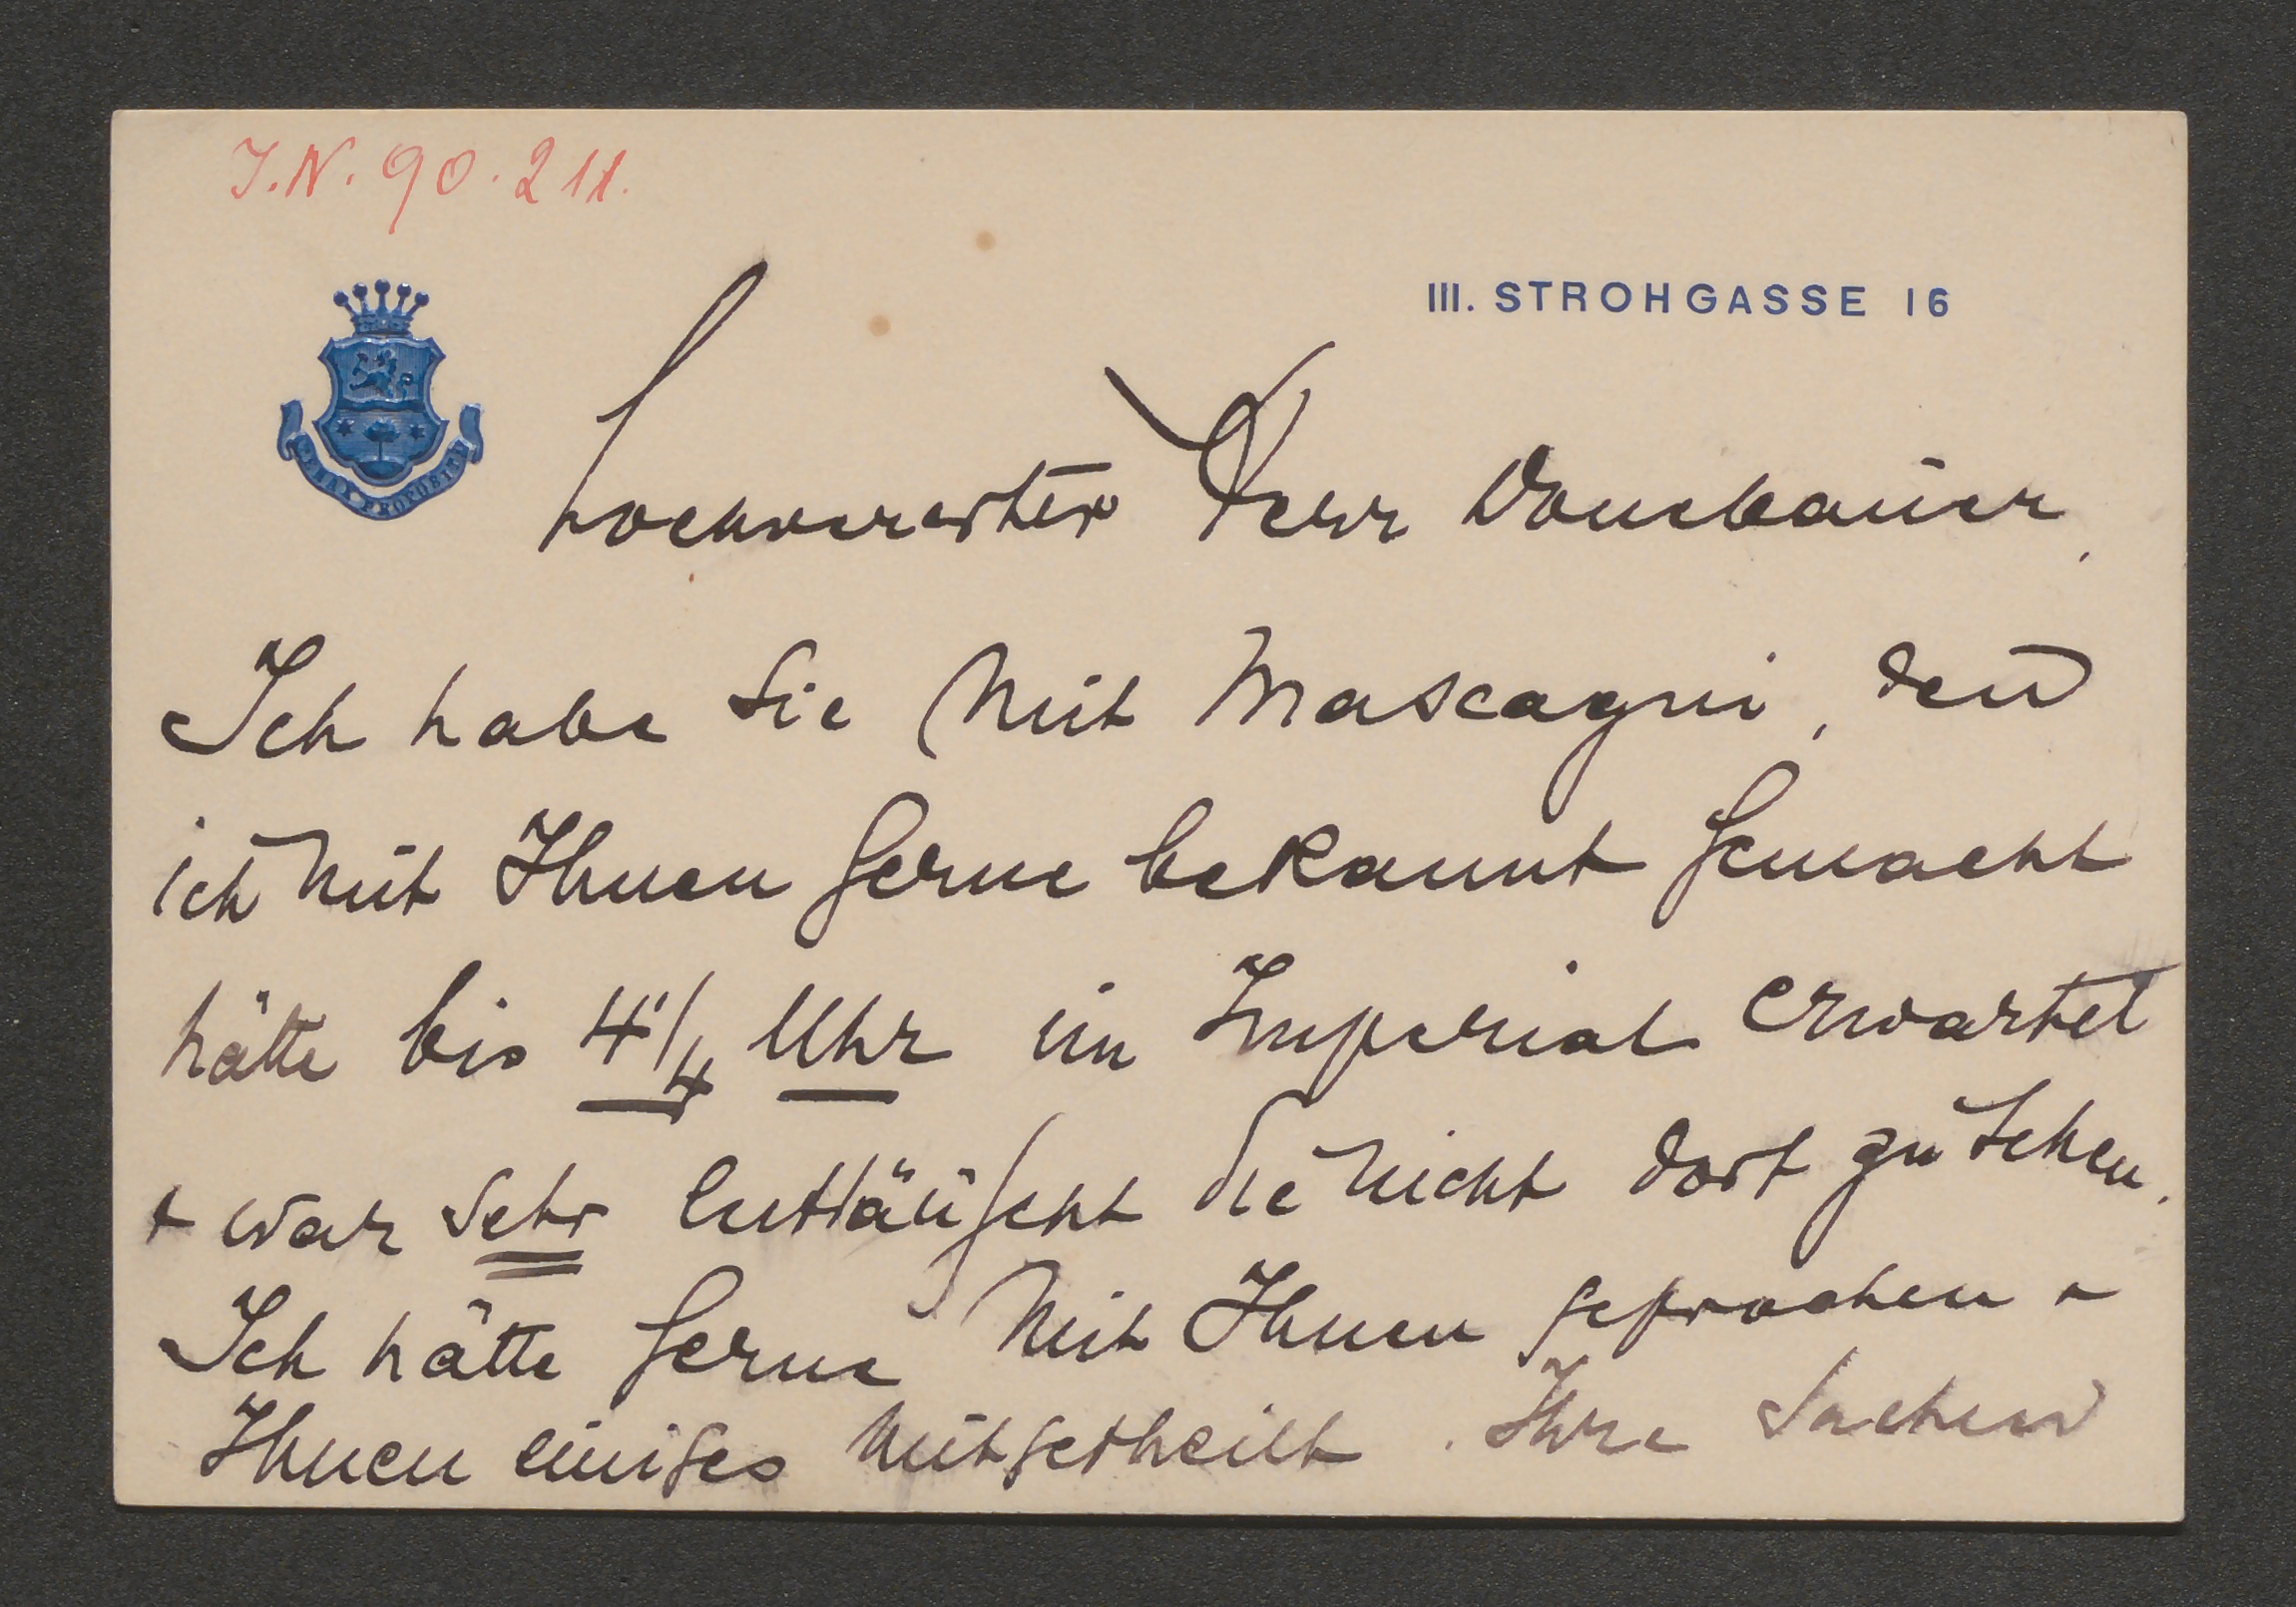 I.N. 90.211.
III. STROHGASSE 16
TENAX PROPOSITI
hochverehrter Herr Donebauer,
Ich habe Sie mit Mascagni, den
ich mit Ihnen gerne bekannt gemacht
hätte bis 4 1/4 Uhr im Imperial erwartet
+ war sehr enttäuscht Sie nicht dort zu sehen.
Ich hätte gerne mit Ihnen gesprochen +
Ihnen einiges mitgetheilt. Ihre Sachen